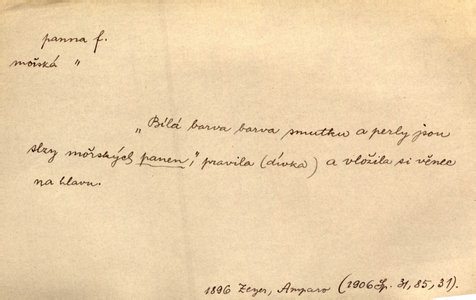 panna f.
mořská "
„Bílá barva barva smutku a perly jsou
slzy mořských panen," pravila (dívka) a vložila si věnec
na hlavu.
1896 Zeyer, Amparo (1906 Sp. 31, 85, 31).